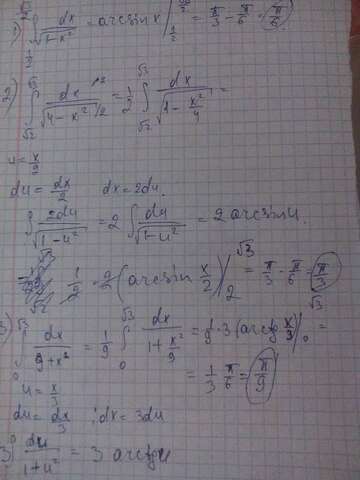 1) ∫_{1/2}^{√3/2} dx/√(1-x²) = arcsin x |_{1/2}^{√3/2} = π/3 - π/6 = π/6
2) ∫_{√2}^{√3} dx/√(4-x²) = 1/2 ∫_{√2}^{√3} dx/√(1-x²/4) =
u = x/2
du = dx/2 dx = 2du.
∫ 2du/√(1-u²) = 2 ∫ du/√(1-u²) = 2 arcsin u.
1/2 · 2 (arcsin x/2) |_{2}^{√3} = π/3 - π/6 = π/3
3) ∫_{0}^{√3} dx/(9+x²) = 1/9 ∫_{0}^{√3} dx/(1+x²/9) = 1/9 · 3 (arctg x/3) |_{0}^{√3} =
= 1/3 π/6 = π/9
u = x/3
du = dx/3 ; dx = 3du
3 ∫ du/(1+u²) = 3 arctg u